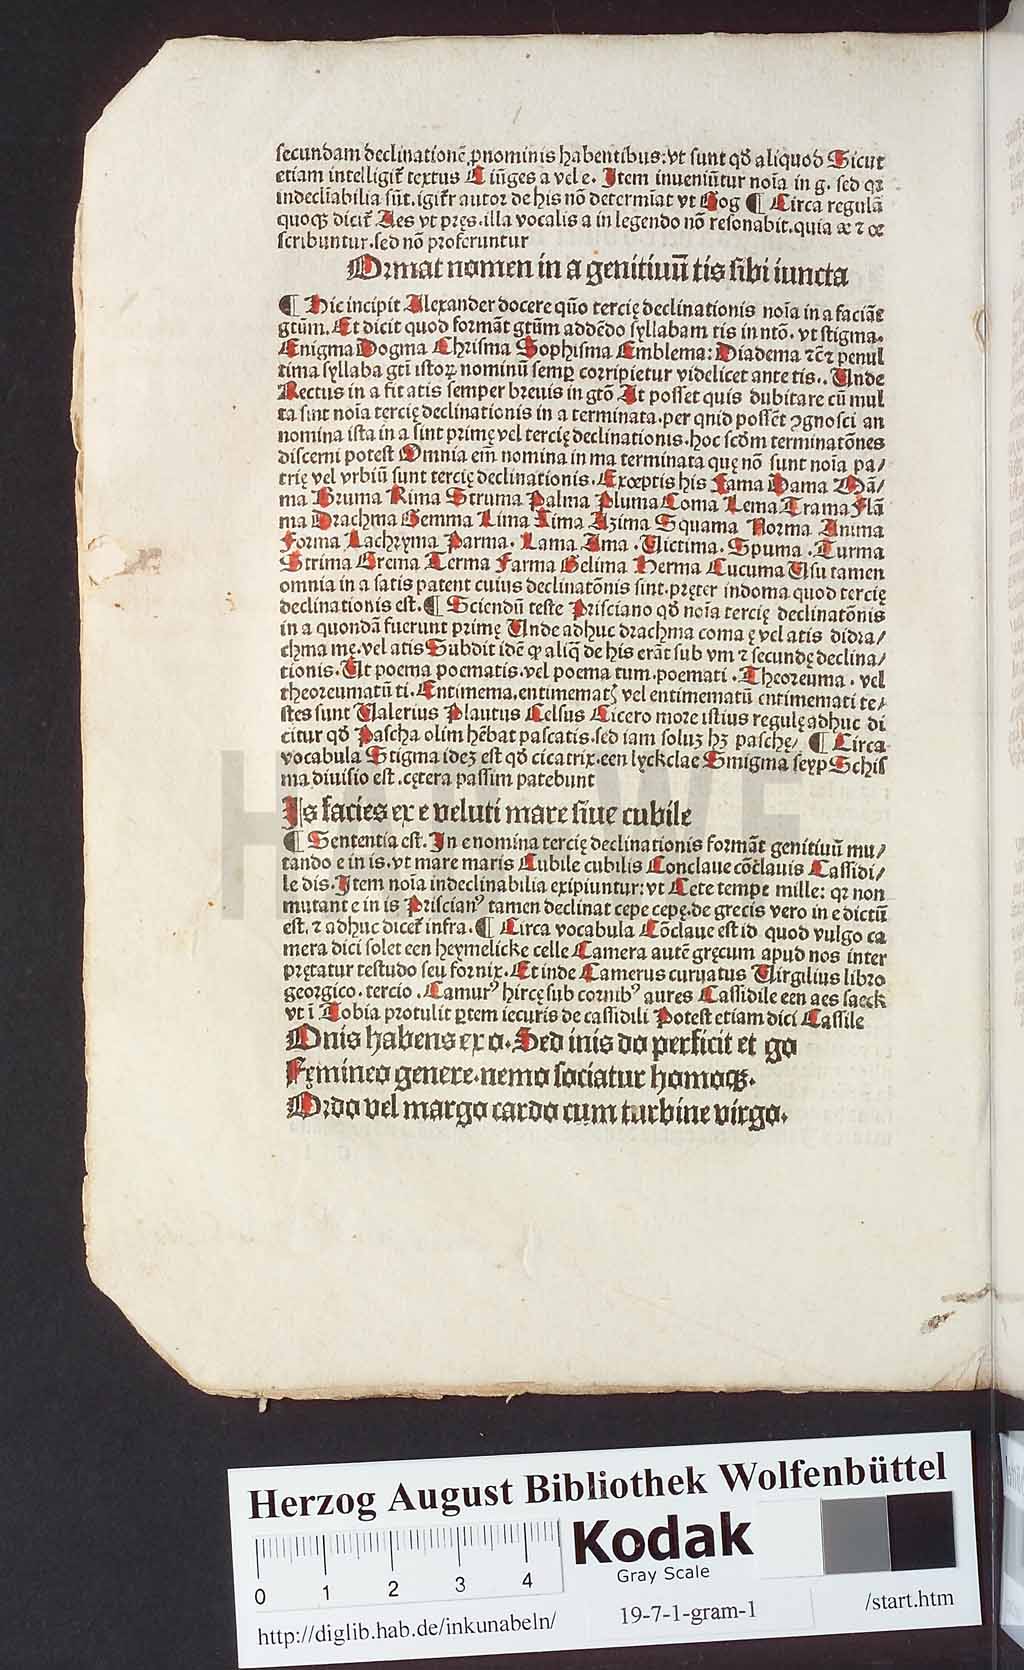 secundam declinationē ꝓnominis habentibus: vt sunt qđ aliquod Sicut
etiam intelligit̄ textus Cū iūges a vel e. Item inueniūtur noīa in g. sed qꝛ
indecliābilia sūt. igit̄ autor de his nō determīat vt Gog ¶ Circa regulā
quoqꝫ dicit̄ Aes vt pręs. illa vocalis a in legendo nō resonabit. quia æ ⁊ œ
scribuntur. sed nō proferuntur
Ormat nomen in a genitiuū tis sibi iuncta
¶ Hic incipit Alexander docere qūo tercię declinationis noīa in a faciāt
gtūm. Et dicit quod formāt gtūm addēdo syllabam tis in ntō. vt stigma.
Enigma Dogma Chrisma Sophisma Emblema: Diadema ⁊cꝛ penul
tima syllaba gtī istoꝝ nominū semꝑ corripietur videlicet ante tis.. Unde
Rectus in a fit atis semper breuis in gtō At posset quis dubitare cū mul
ta sint noīa tercię declinationis in a terminata. per quid possēt ꝯgnosci an
nomina ista in a sint primę vel tercię declinationis. hoc scđm terminatōnes
discerni potest Omnia eiīn nomina in ma terminata quę nō sunt noīa pa/
trię vel vrbiū sunt tercię declinationis. Exceptis his Fama Dama Mā/
ma Bruma Rima Struma Palma Pluma Coma Lema Trama Flā
ma Drachma Gemma Lima Sima Azima Squama Norma Anima
Forma Lachryma Parma. Lama Ama. Victima. Spuma. Turma
Strima Grema Terma Farma Gelima Herma Cucuma Usu tamen
omnia in a satis patent cuius declinatōnis sint. pręter indoma quod tercię
declinationis est. ¶ Sciendū teste Prisciano qđ noīa tercię declinatōnis
in a quondā fuerunt primę Unde adhuc drachma coma ę vel atis didra/
chma mę. vel atis Subdit idē ꝙ aliq̄ de his erāt sub vm ⁊ secundę declina/
tionis. Ut poema poematis. vel poema tum. poemati. Theoreuma. vel
theoreumatū ti. Entimema. entimematꝫ vel entimematū entimemati te/
stes sunt Valerius Plautus Celsus Cicero more istius regulę adhuc di
citur qđ Pascha olim hēbat pascatis. sed iam soluꝫ hꝫ paschę/ ¶ Circa
vocabula Stigma ideꝫ est qđ cicatrix. een lyckclae Smigma seyp Schis
ma diuisio est. cętera passim patebunt
Is facies ex e veluti mare siue cubile
¶ Sententia est. In e nomina tercię declinationis formāt genitiuū mu/
tando e in is. vt mare maris Cubile cubilis Conclaue cōclauis Cassidi/
le dis. Item noīa indeclinabilia expiuntur: vt Cete tempe mille: qꝛ non
mutant e in is Priscianꝰ tamen declinat cepe cepę. de grecis vero in e dictū
est. ⁊ adhuc dicet̄ infra. ¶ Circa vocabula Cōclaue est id quod vulgo ca
mera dici solet een heymelicke celle Camera autē gręcum apud nos inter
pretatur testudo seu fornix. Et inde Camerus curuatus Virgilius libro
georgico. tercio. Camurꝰ hircę sub cornibꝰ aures Cassidile een aes saeck
vt ī Tobia protulit ꝑtem iecuris de cassidili Potest etiam dici Cassile
Onis habens ex o. Sed inis do perficit et go
Fęmineo genere. nemo sociatur homoqꝫ.
Ordo vel margo cardo cum turbine virgo.
HAB-WF
Herzog August Bibliothek Wolfenbüttel
0 1 2 3 4
Kodak
Gray Scale
http://diglib.hab.de/inkunabeln/
19-7-1-gram-1
/start.htm